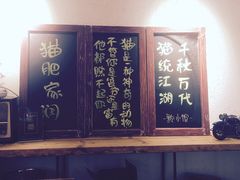 千秋万代
猫统江湖
猫是一种神奇的动物
不管你是贫穷还是富有
他都瞧不起你
猫肥家润